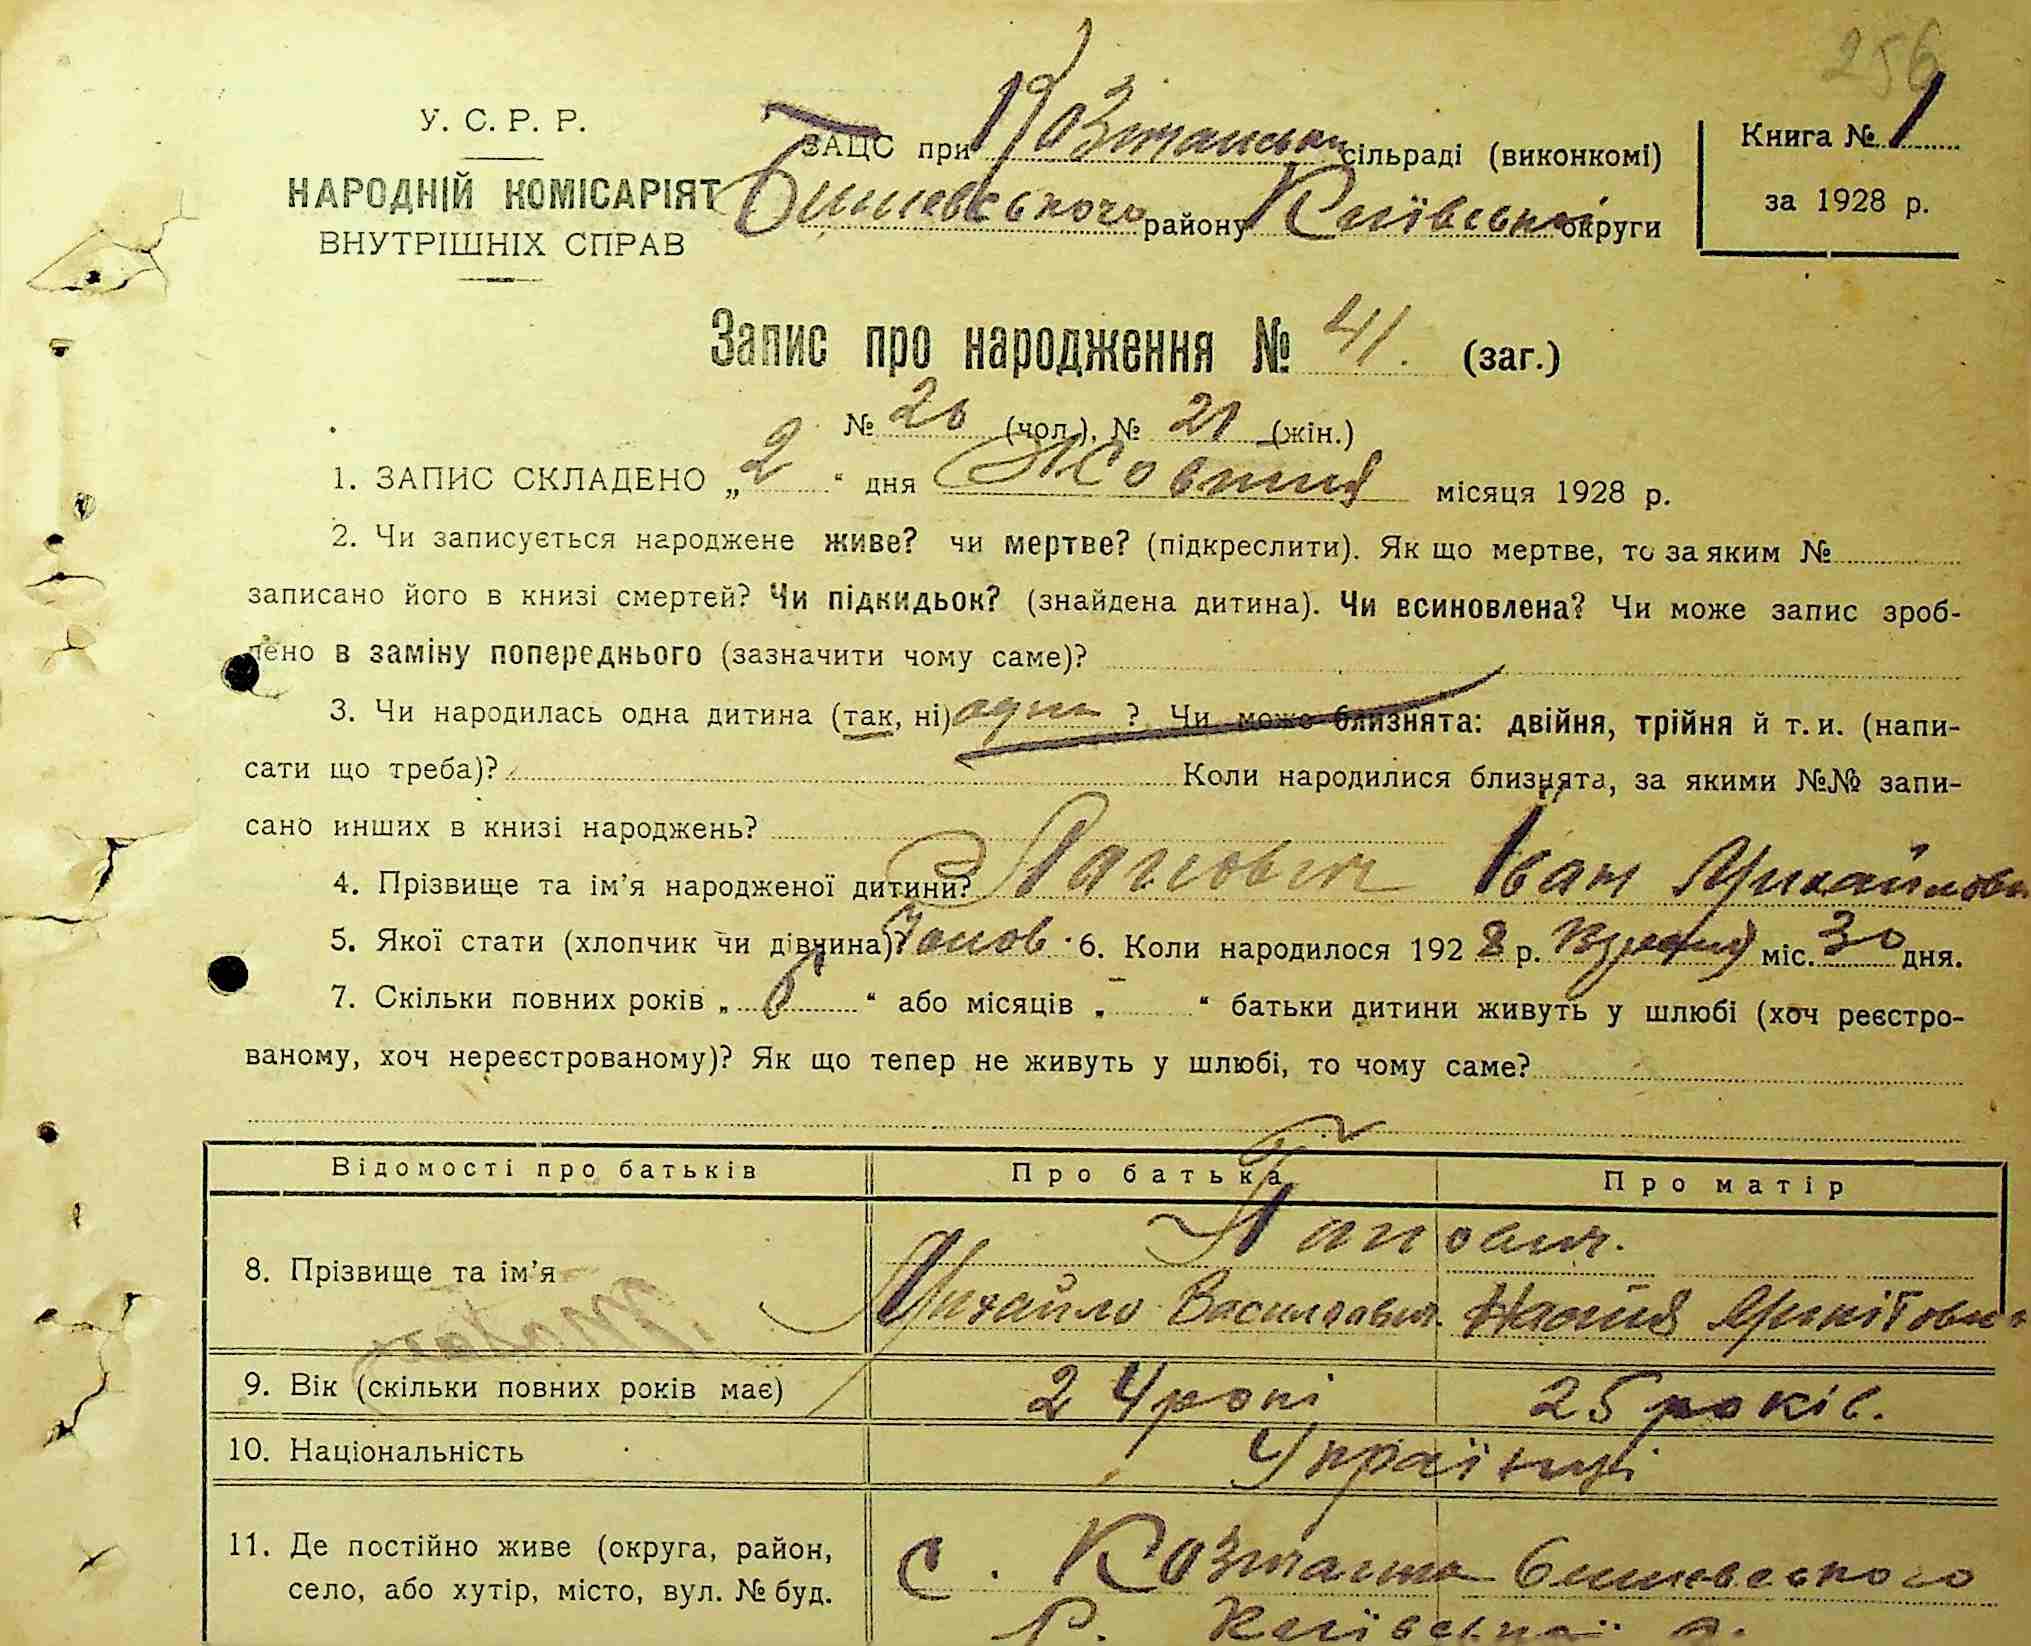 256
У. С. Р. Р.
НАРОДНІЙ КОМІСАРІЯТ
ВНУТРІШНІХ СПРАВ
ЗАЦС при сільраді (виконкомі)
району Київської округи
Книга № 1
за 1928 р.
Запис про народження № 41. (заг.)
№ 20 (чол.). № 21 (жін.)
1. ЗАПИС СКЛАДЕНО „2“ дня Жовтня місяця 1928 р.
2. Чи записується народжене живе? чи мертве? (підкреслити). Як що мертве, то за яким №
записано його в книзі смертей? Чи підкидьок? (знайдена дитина). Чи всиновлена? Чи може запис зроб-
лено в заміну попереднього (зазначити чому саме)?
3. Чи народилась одна дитина (так, ні) одна ? Чи може близнята: двійня, трійня й т. и. (напи-
сати що треба)? Коли народилися близнята, за якими №№ запи-
сано инших в книзі народжень?
4. Прізвище та ім’я народженої дитини? Папович Іван Михайлович
5. Якої стати (хлопчик чи дівчина)? чолов. 6. Коли народилося 1928 р. Вересня міс. 30 дня.
7. Скільки повних років „6“ або місяців „-“ батьки дитини живуть у шлюбі (хоч реєстро-
ваному, хоч нереєстрованому)? Як що тепер не живуть у шлюбі, то чому саме?
Відомості про батьків Про батька Про матір
8. Прізвище та ім’я Папович.
Михайло Василович. Микітовн
9. Вік (скільки повних років має) 24 рокі 25 років.
10. Національність Українці
11. Де постійно живе (округа, район,
село, або хутір, місто, вул. № буд.
с.
р. Київської о.